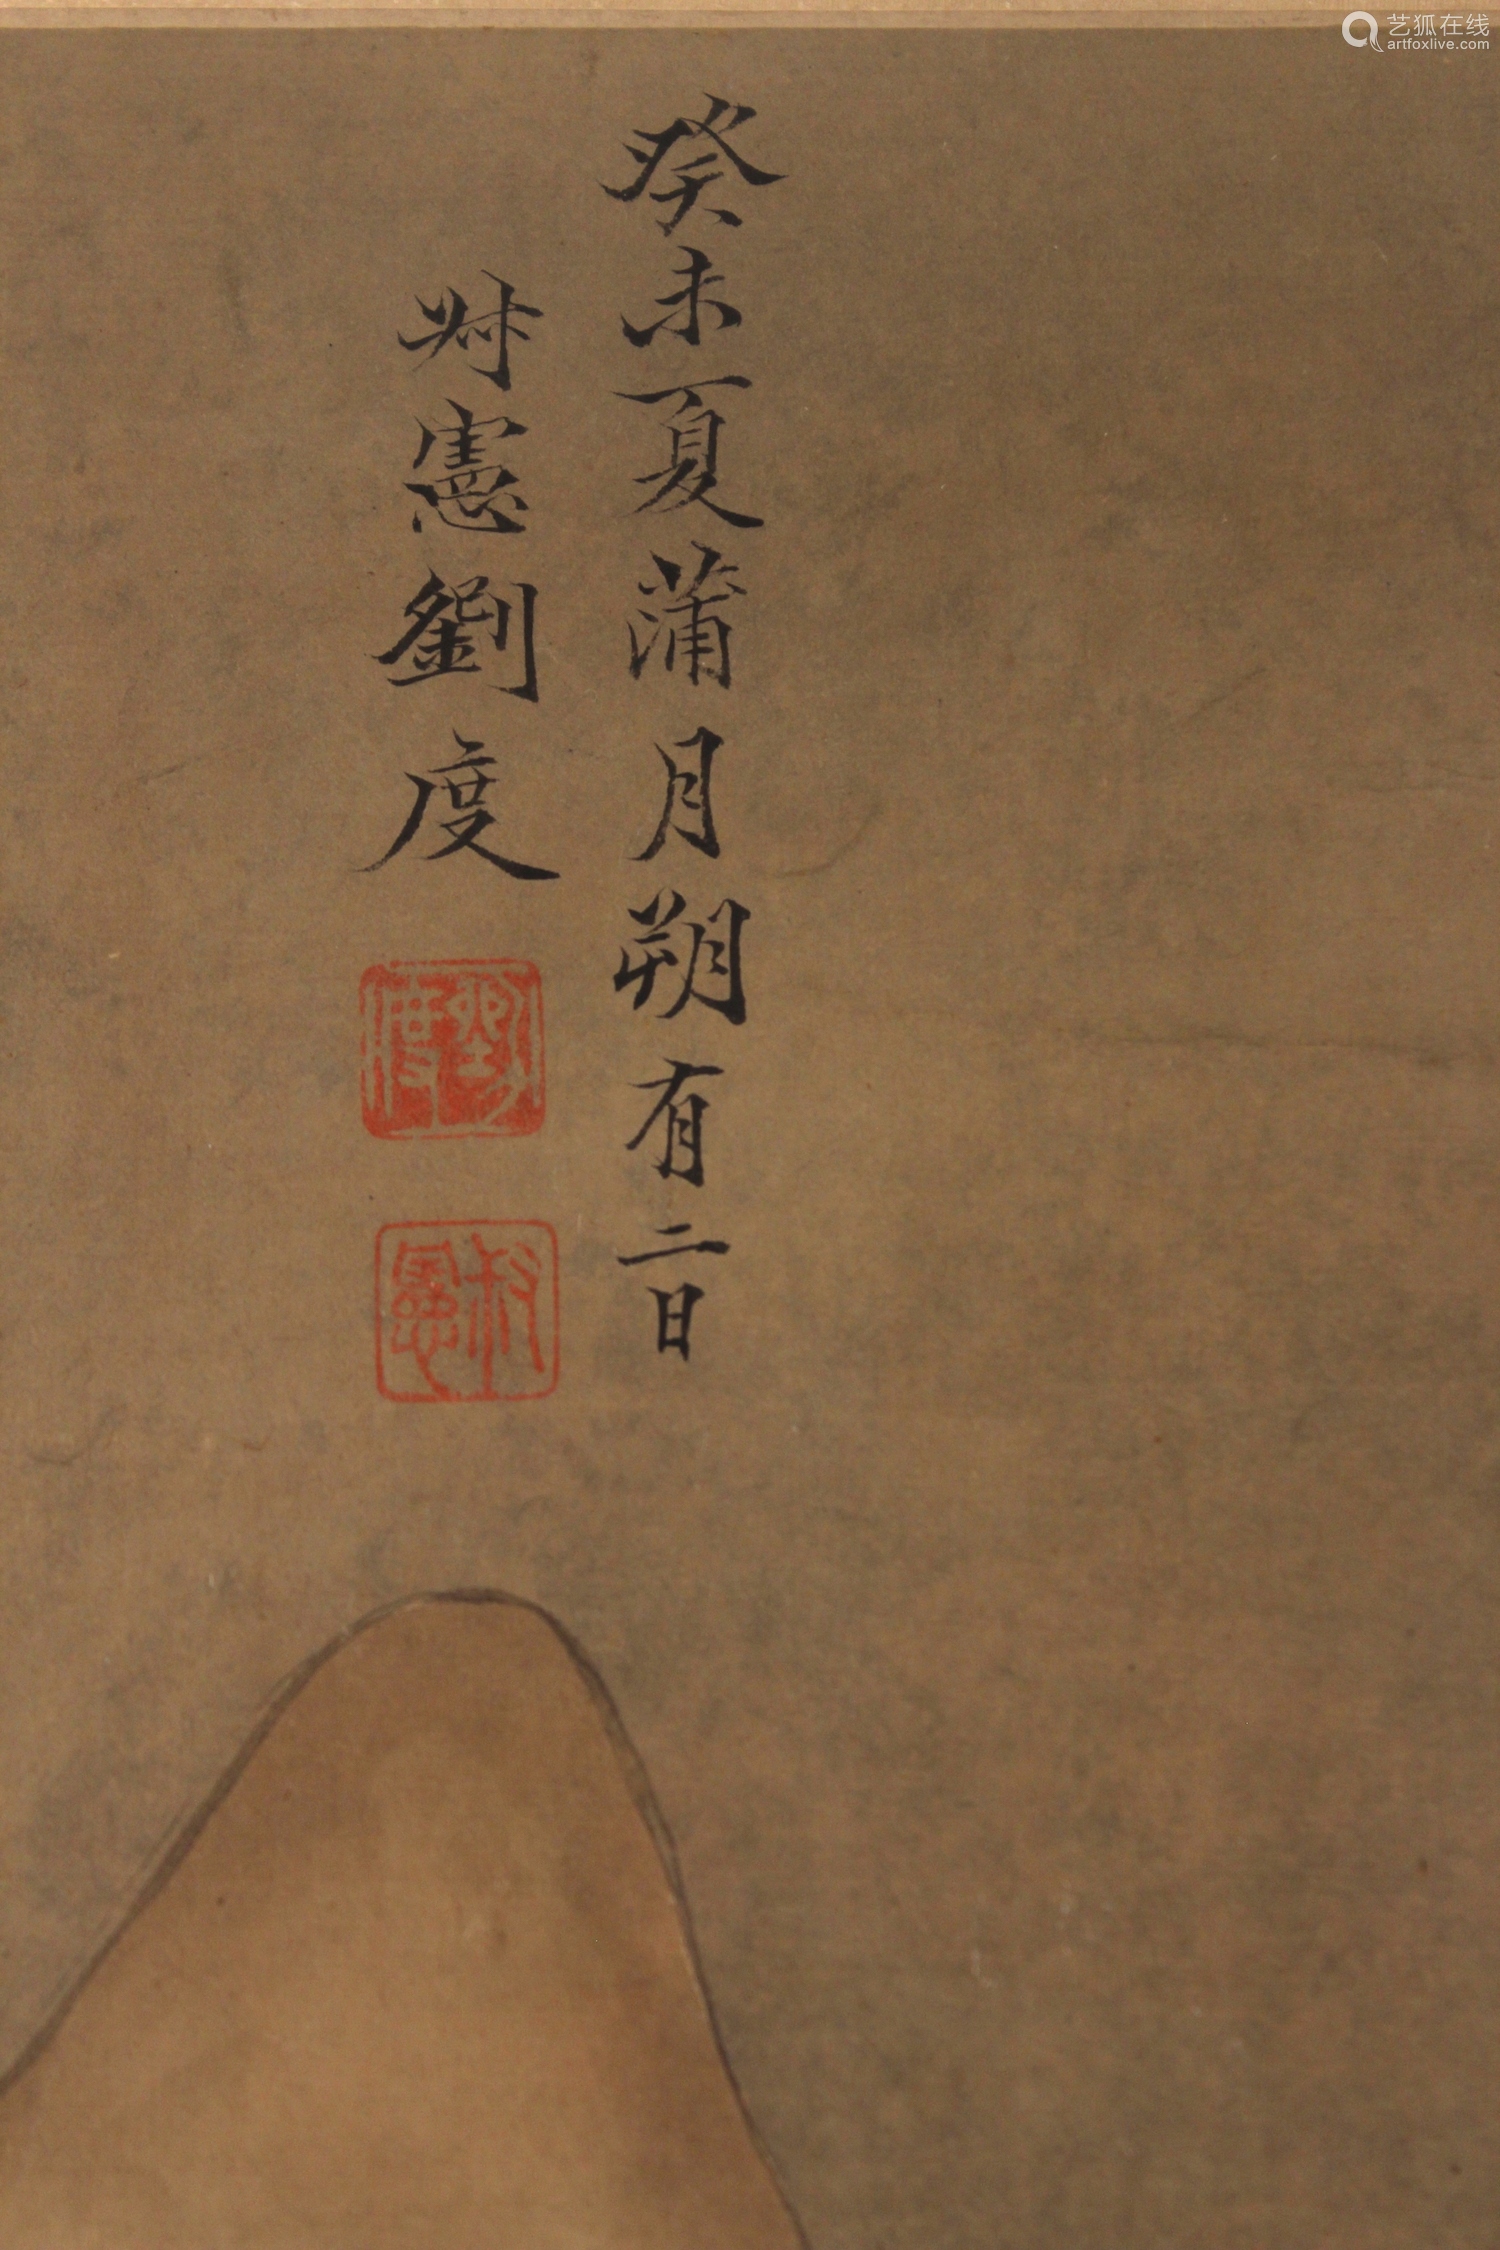 艺狐在线
artfoxlive.com
癸未夏蒲月朔有二日
叔憲劉度
劉度
叔憲